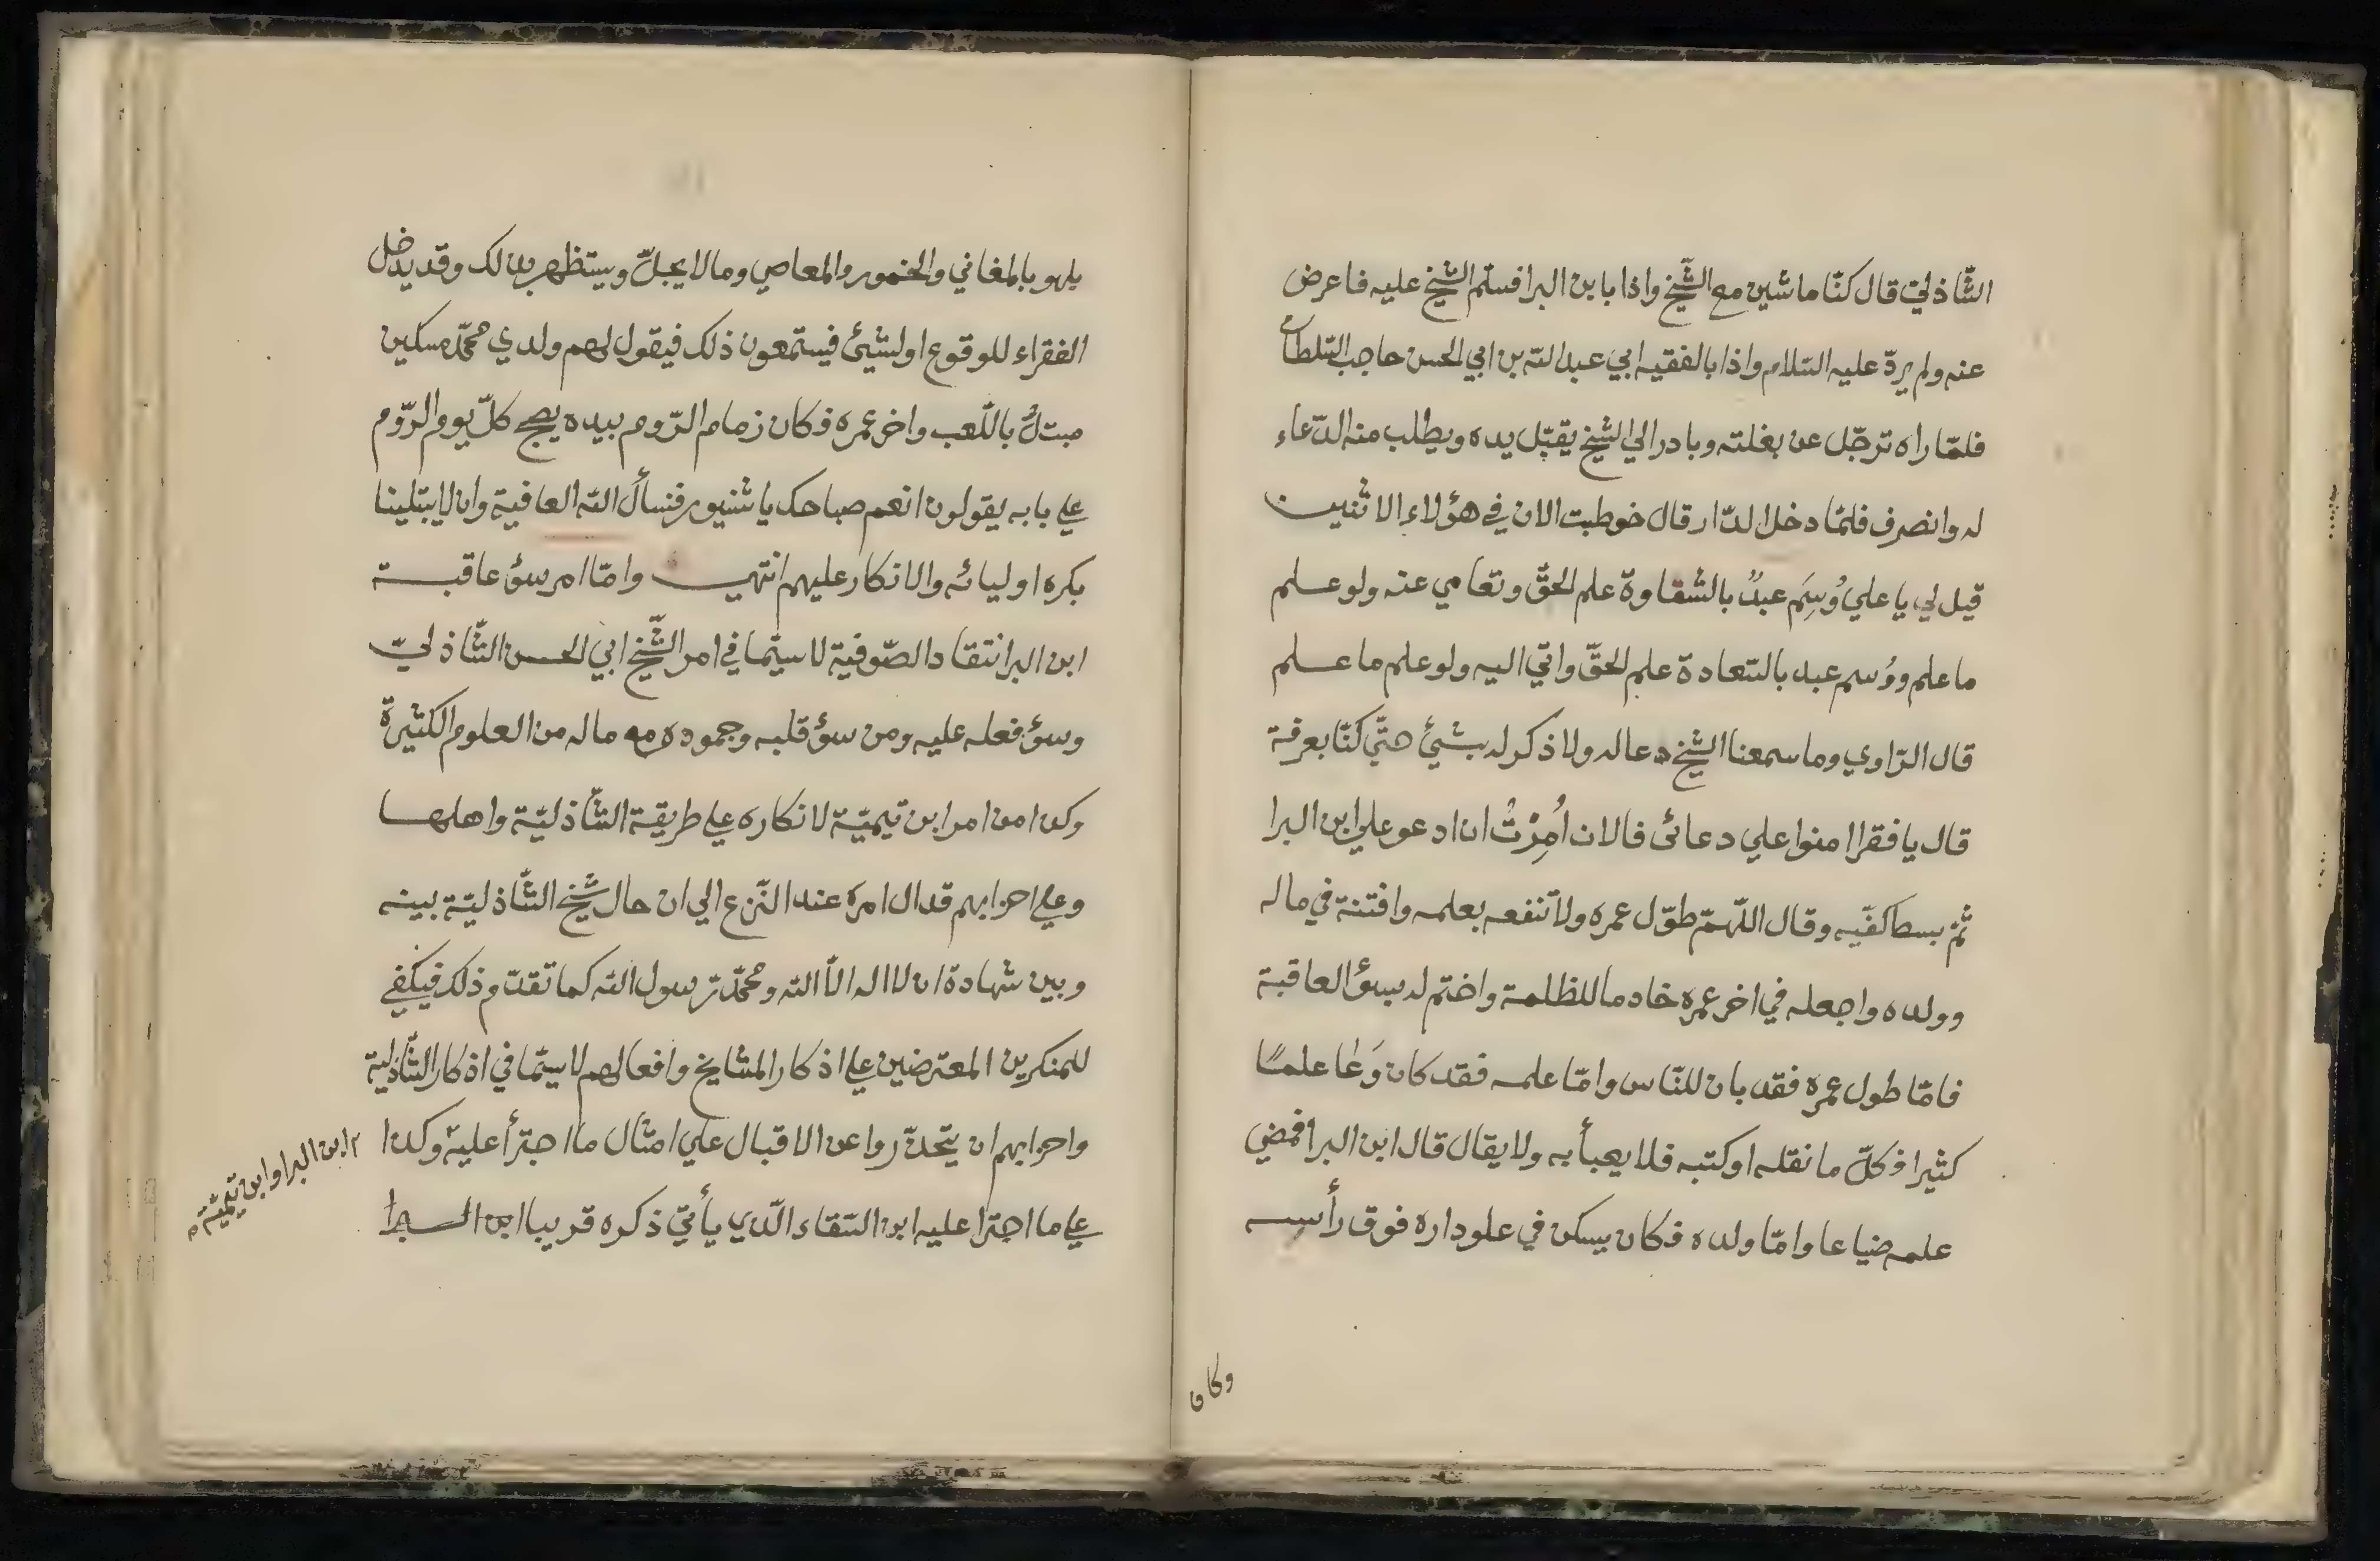 الشّاذليّ قال كنّا ماشين مع الشّيخ واذا بابن البرا فسلّم الشّيخ عليه فاعرض
عنه ولم يردّ عليه السّلام واذا بالفقيه ابي عبد اللّه بن ابي الحسن حاجب السّلطان
فلمّا راه ترجّل عن بغلته وبادر الي الشّيخ يقبّل يده ويطلب منه الدّعاء
له وانصرف فلمّا دخل الدّار قال خوطبت الان في هؤلاء الاثنين
قيل لي يا علي وُسِمَ عبدٌ بالشّقاوة علم الحقّ وتعامي عنه ولو علم
ما علم ووُسم عبد بالسّعادة علم الحقّ واتي اليه ولو علم ما علم
قال الرّاوي وما سمعنا الشّيخ دعا له ولا ذكر له بشيئ حتّي كنّا بعرفة
قال يا فقرا امنوا علي دعائى فالان اُمِرْتُ ان ادعو علي ابن البرا
ثمّ بسط كفّيه وقال اللّهمّ طوّل عمره ولا تنفعه بعلمه وافتنة في ماله
وولده واجعله في اخر عمره خادما للظلمة واختم له بسؤ العاقبة
فامّا طول عمره فقد بان للنّاس وامّا علمه فقد كان وَعَا علمًا
كثيرا فكلّ ما نقله او كتبه فلا يعبأ به ولا يقال قال ابن البرا فمضي
علمه ضياعا وامّا ولده فكان يسكن في علو داره فوق رأسه
وكان
يلهو بالمغاني والخمور والمعاصي وما لا يحلّ ويستظهر بذالك وقد يدخل
الفقراء للوقوع او لشيئ فيستمعون ذلك فيقول لهم ولدي محمّد مسكين
مبتلٌ باللّعب واخر عمره فكان زمام الرّوم بيده يصبح كلّ يوم الرّوم
علي بابه يقولون انعم صباحك يا شنيور فنسأل اللّه العافية وان لا يبتلينا
بكره اوليائه والانكار عليهم انتهي وامّا امر سؤ عاقبة
ابن البرا انتقاد الصّوفية لا سيّما في امر الشّيخ ابي الحسن الشّاذليّ
وسؤ فعله عليه ومن سؤ قلبه وجموده مه ما له من العلوم الكثيرة
وكذا من امر ابن تيميّة لانكاره علي طريقة الشّاذليّة واهلها
وعلي احزابهم قد ال امره عند النّزع الي ان حال شيخ الشّاذليّة بينه
وبين شهادة ان لا اله الّا اللّه ومحمّد رسول اللّه كما تقدّم وذلك فيكفي
للمنكرين المعترضين علي اذكار المشايخ وافعالهم لا سيّما في اذكار الشّاذلية
واحزابهم ان يتحذّروا عن الاقبال علي امثال ما اجترأ عليه ٢ وكذا
علي ما اجترا عليه ابن السّقاء الّذي يأتي ذكره قريبا ابن البرا
٢ ابن البرا وابن تيميّة